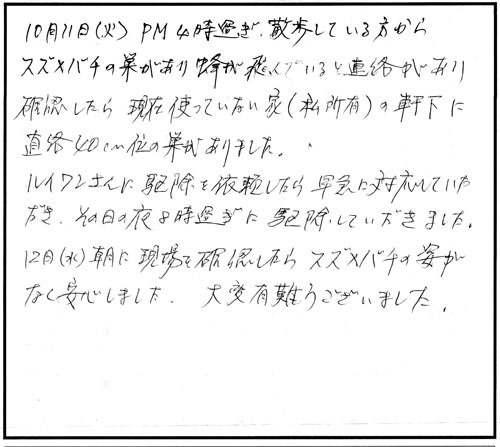 10月11日(火) PM 4時過ぎ、散歩している方から
スズメバチの巣があり蜂が飛んでいると連絡があり
確認したら現在使っていない家(私所有)の軒下に
直径40cm位の巣がありました。
ルイワンさんに駆除を依頼したら早急に対応していた
だき、その日の夜8時過ぎに駆除していだきました。
12日(水)朝に現場を確認したらスズメバチの姿が
なく安心しました。大変有難うございました。